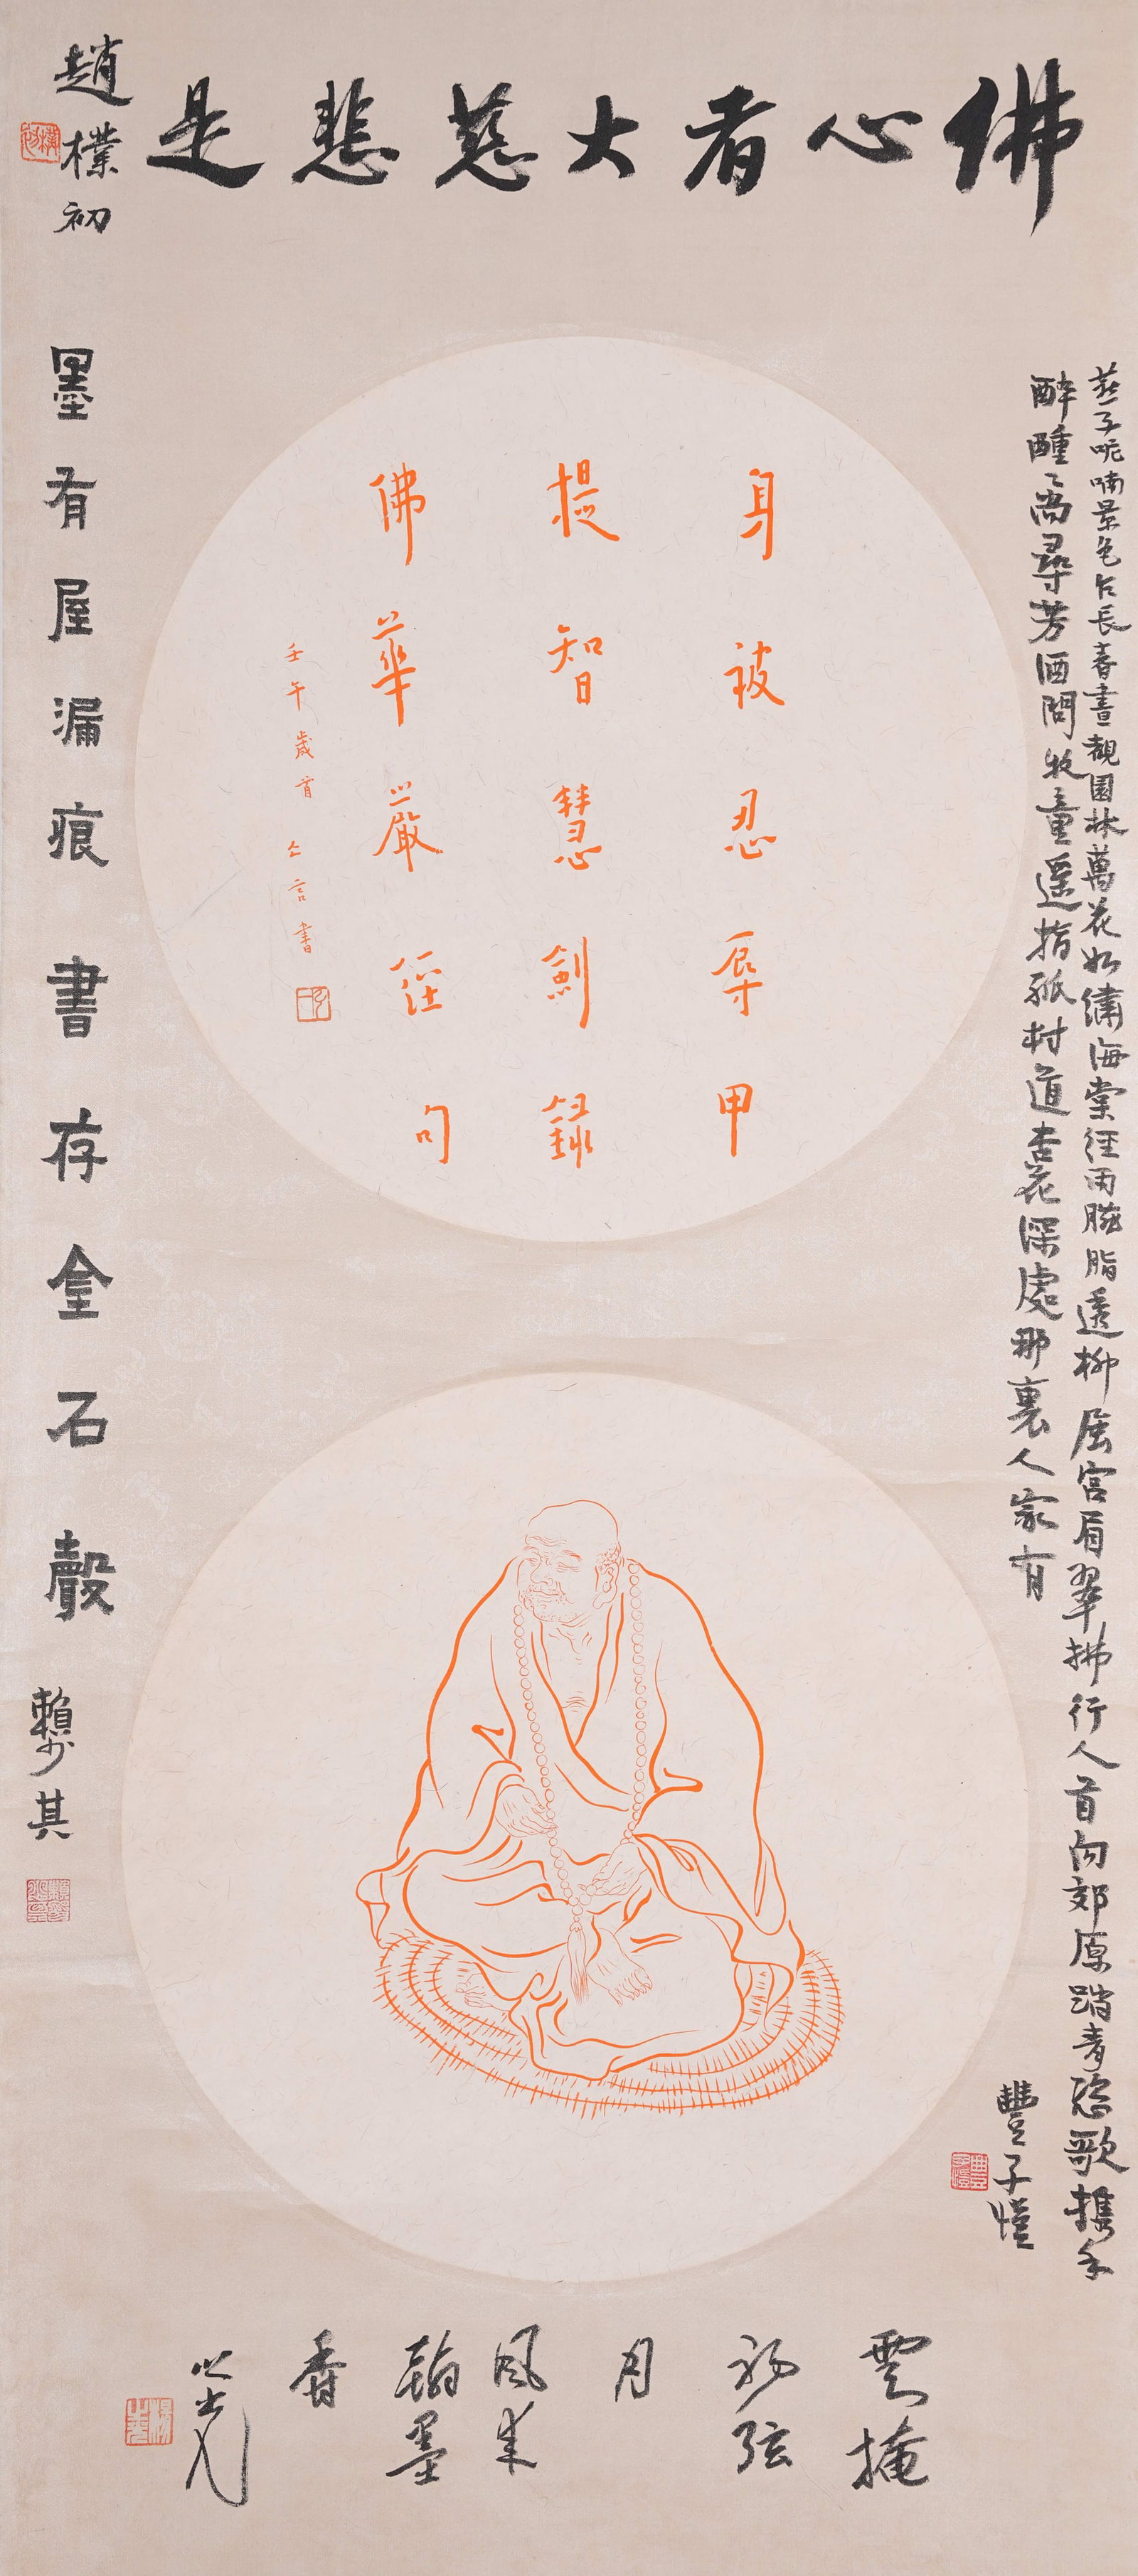 佛心者大慈悲是
趙樸初
燕子呢喃景色乍長春晝觀園林萬花如繡海棠經雨臙脂透柳展宮眉翠拂行人首向郊原踏青恣歌携手
醉醺〻尚尋芳酒問牧童遥指孤村道杏花深處那裏人家有
豐子愷
身被忍辱甲
提智慧劍
錄佛華嚴經句
壬午歲首
言書
墨有屋漏痕書存金石聲
賴少其
雲掩
初弦
月
風來
翰墨
香
之光